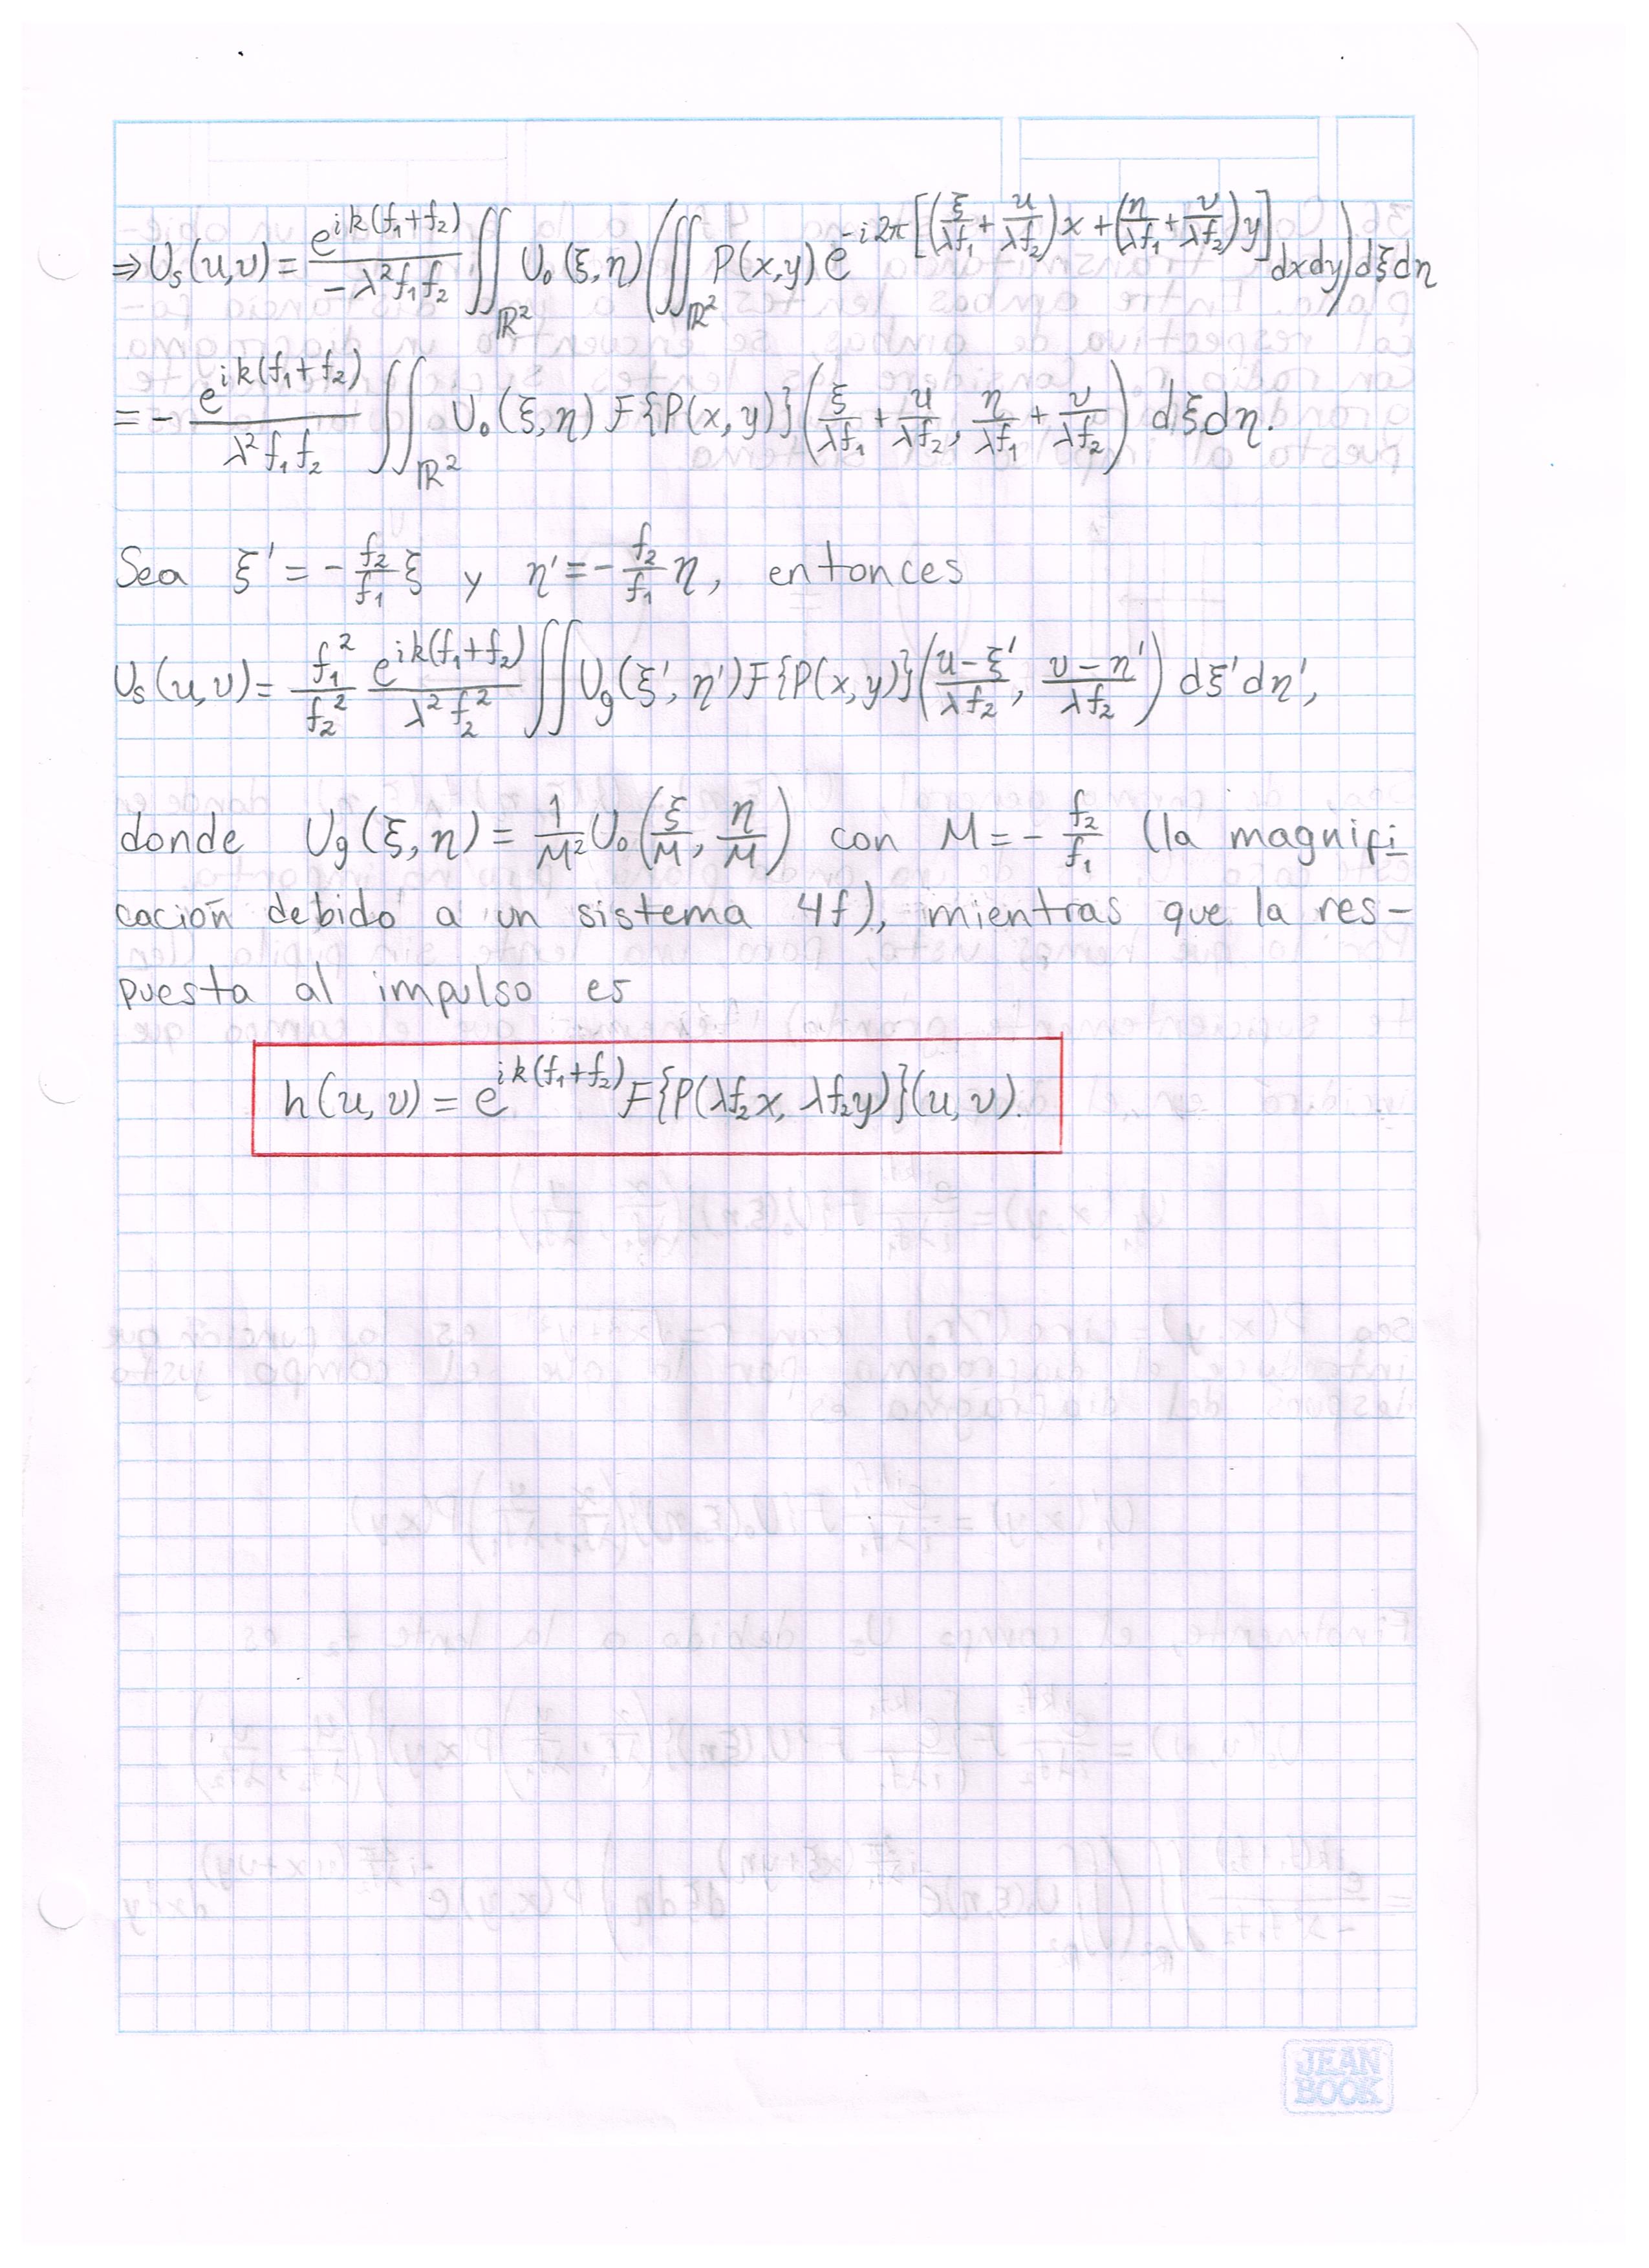 ⇒ U_s(u,v) = \frac{e^{ik(f_1+f_2)}}{-λ^2 f_1 f_2} ∬_{ℝ^2} U_0(ξ,η) (∬_{ℝ^2} P(x,y) e^{-i2π[(\frac{ξ}{λf_1}+\frac{u}{λf_2})x+(\frac{η}{λf_1}+\frac{v}{λf_2})y]} dxdy) dξdη
= - \frac{e^{ik(f_1+f_2)}}{λ^2 f_1 f_2} ∬_{ℝ^2} U_0(ξ,η) F{P(x,y)}(\frac{ξ}{λf_1}+\frac{u}{λf_2}, \frac{η}{λf_1}+\frac{v}{λf_2}) dξdη.
Sea ξ' = -\frac{f_2}{f_1}ξ y η' = -\frac{f_2}{f_1}η, entonces
U_s(u,v) = \frac{f_1^2}{f_2^2} \frac{e^{ik(f_1+f_2)}}{λ^2 f_2^2} ∬ U_g(ξ',η') F{P(x,y)}(\frac{u-ξ'}{λf_2}, \frac{v-η'}{λf_2}) dξ'dη',
donde U_g(ξ,η) = \frac{1}{M^2} U_0(\frac{ξ}{M}, \frac{η}{M}) con M = -\frac{f_2}{f_1} (la magnifi
cación debido a un sistema 4f), mientras que la res-
puesta al impulso es
h(u,v) = e^{ik(f_1+f_2)} F{P(λf_2x, λf_2y)}(u,v).
JEAN
BOOK